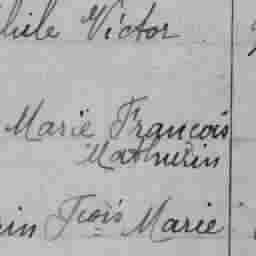 Victor
Marie François
Mathurin
in Fçois Marie